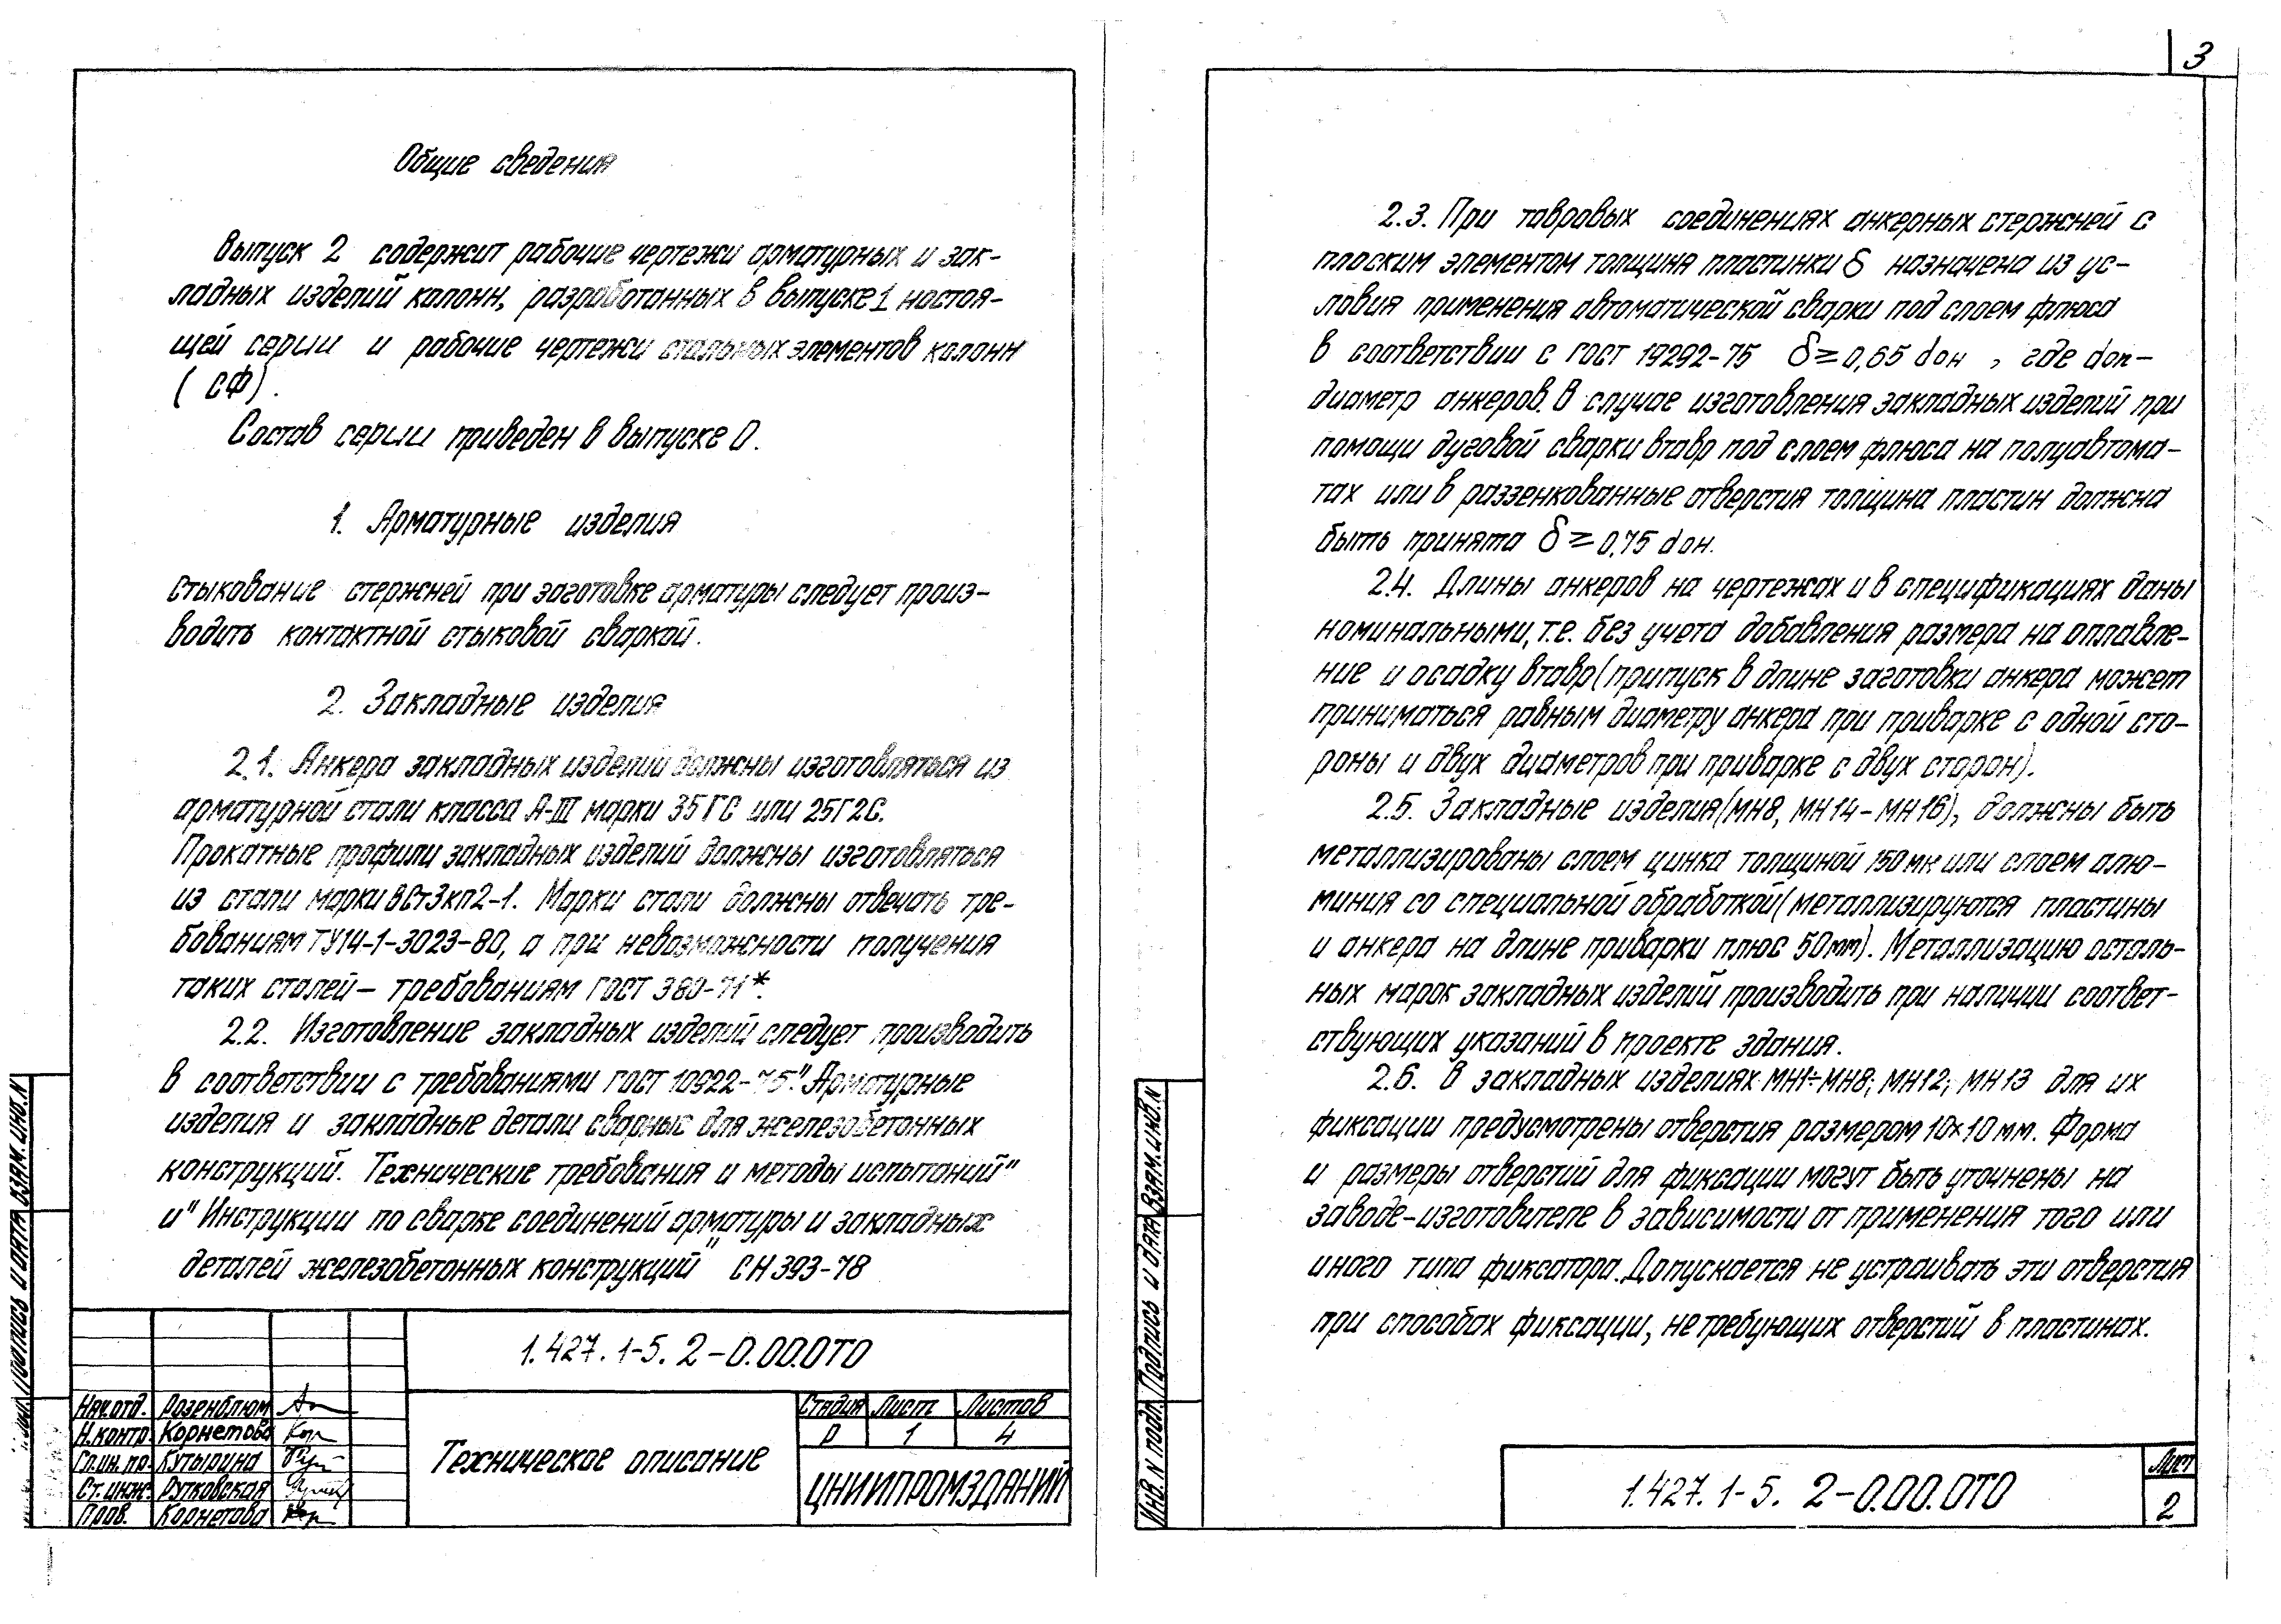 Общие сведения
Выпуск 2 содержит рабочие чертежи арматурных и зак-
ладных изделий колонн, разработанных в выпуске 1 настоя-
щей серии и рабочие чертежи стальных элементов колонн
(СФ).
Состав серии приведен в выпуске 0.
1. Арматурные изделия
Стыкование стержней при заготовке арматуры следует произ-
водить контактной стыковой сваркой.
2. Закладные изделия
2.1. Анкера закладных изделий должны изготовляться из
арматурной стали класса А-III марки 35ГС или 25Г2С.
Прокатные профили закладных изделий должны изготовляться
из стали марки ВСт3кп2-1. Марки стали должны отвечать тре-
бованиям ТУ14-1-3023-80, а при невозможности получения
таких сталей – требованиям ГОСТ 380-71*.
2.2. Изготовление закладных изделий следует производить
в соответствии с требованиями ГОСТ 10922-75 "Арматурные
изделия и закладные детали сварные для железобетонных
конструкций. Технические требования и методы испытаний"
и "Инструкции по сварке соединений арматуры и закладных
деталей железобетонных конструкций" СН 393-78
1.427.1-5.2-0.00.0ТО
Нач.отд. Розенблюм
Н.контр. Корнетова
Гл.ин.пр. Кутырина
Ст.инж. Рутковская
Пров. Корнетова
Техническое описание
Стадия Лист Листов
Р 1 4
ЦНИИПРОМЗДАНИЙ
Подпись и дата Взам.инв.N
3
2.3. При тавровых соединениях анкерных стержней с
плоским элементом толщина пластинки δ назначена из ус-
ловия применения автоматической сварки под слоем флюса
в соответствии с ГОСТ 19292-75 δ ≥ 0,65 dан , где dан –
диаметр анкеров. В случае изготовления закладных изделий при
помощи дуговой сварки втавр под слоем флюса на полуавтома-
тах или в раззенкованные отверстия толщина пластин должна
быть принята δ ≥ 0,75 dан.
2.4. Длины анкеров на чертежах и в спецификациях даны
номинальными, т.е. без учета добавления размера на оплавле-
ние и осадку втавр (припуск в длине заготовки анкера может
приниматься равным диаметру анкера при приварке с одной сто-
роны и двух диаметров при приварке с двух сторон).
2.5. Закладные изделия (МН8, МН14 – МН16), должны быть
металлизированы слоем цинка толщиной 150 мк или слоем алю-
миния со специальной обработкой (металлизируются пластины
и анкера на длине приварки плюс 50мм). Металлизацию осталь-
ных марок закладных изделий производить при наличии соответ-
ствующих указаний в проекте здания.
2.6. В закладных изделиях МН1÷МН8; МН12; МН13 для их
фиксации предусмотрены отверстия размером 10×10 мм. Форма
и размеры отверстий для фиксации могут быть уточнены на
заводе-изготовителе в зависимости от применения того или
иного типа фиксатора. Допускается не устраивать эти отверстия
при способах фиксации, не требующих отверстий в пластинах.
Инв.N подл. Подпись и дата Взам.инв.N
1.427.1-5.2-0.00.0ТО
Лист
2